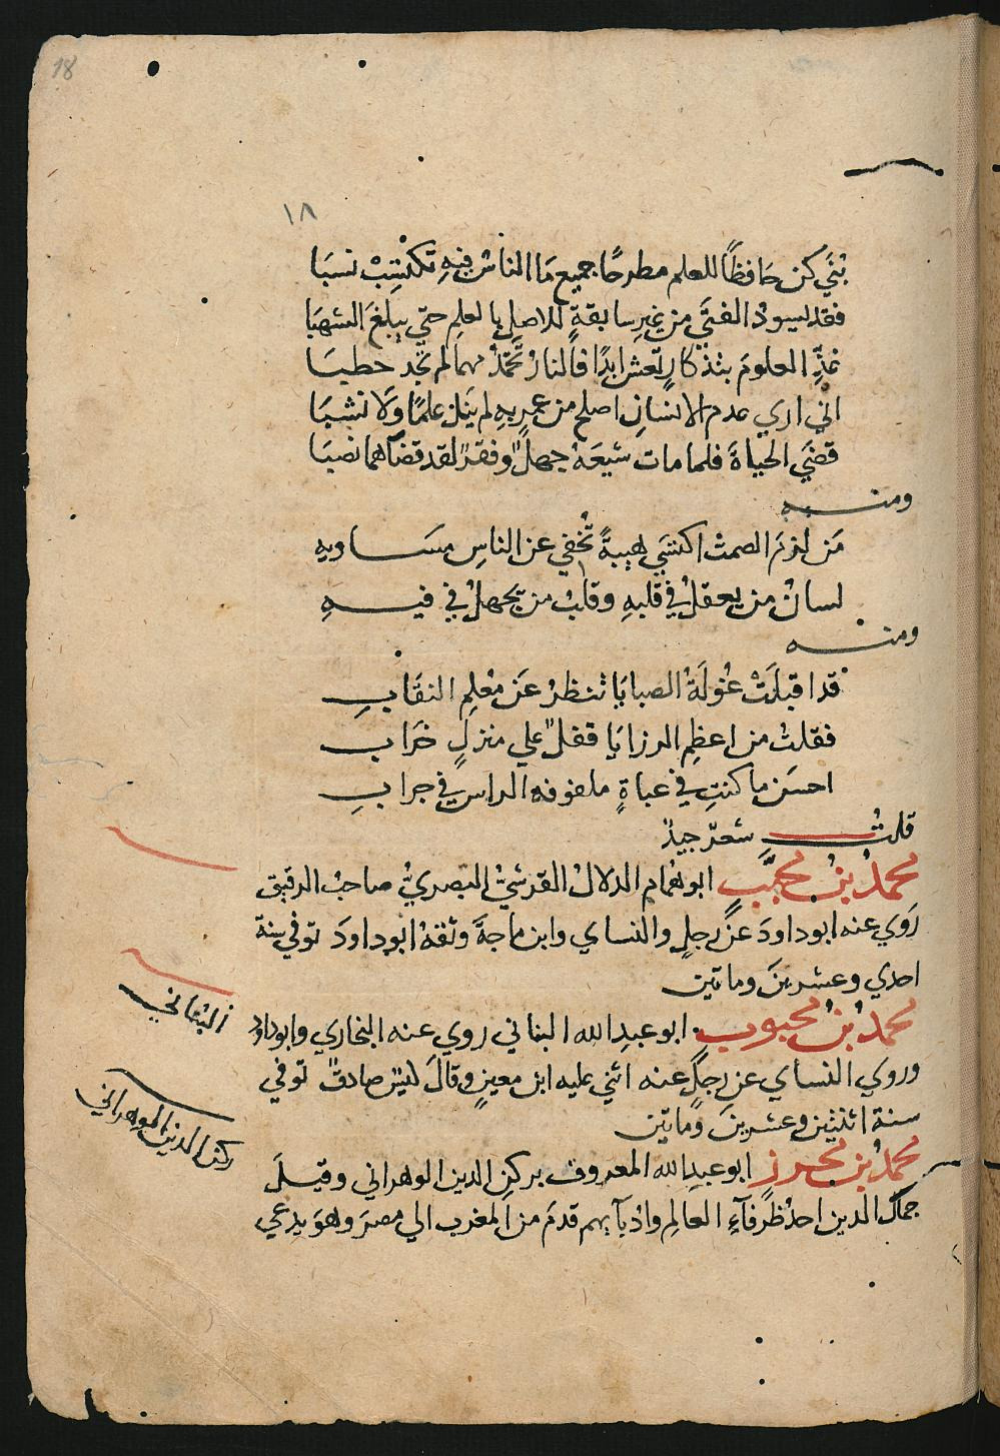 18
١٨
بُنَي كن حَافظاً للعلم مطرحًا جميع مَا الناسُ فيهِ تكتسِبْ نسبَا
فقد يسودُ الفتَي من غيرِ سابقةٍ للاصلِ بالعلمِ حتي يبلغَ الشهبَا
غذِّ العلومَ بتذكارٍ تعش ابدًا فالنارُ تخمَدُ مهما لم تجد حطبَا
اني اري عدم الانسانِ اصلح من عمرٍ بهِ لم ينل علمًا ولا نشبَا
قضَي الحياةَ فلما مات شيعَهُ جهلٌ وفقرٌ لقد قضاهما نصبَا
ومنه
مَن لزمَ الصمتَ اكتسَي هيبةً تُخفي عن الناسِ مسَاويهِ
لسانُ من يعقلُ في قلبهِ وقلبُ من يجهلُ في فيهِ
ومنه
قد اقبلَتْ غُولَةُ الصبايَا تنظرُ عَن مُعلم النقَابِ
فقلتُ من اعظِم الرزايَا قفلٌ علي منزلٍ خرَابِ
احسَن ما كنتِ في عباةٍ ملفوفه الراس في جرابِ
قلتُ شعرٌ جيدٌ
محمدُ بنُ محبَّبٍ ابو همام الدلالُ القرشيُ البصريُّ صاحبُ الرقيق
رَوي عنه ابو داودَ عن رجلٍ والنساي وابن ماجةَ وثقهُ ابو داودَ توفي سنة
احدي وعشرينَ وماتين
محمدُ بنُ محبوب ابو عبدِ الله البناني روي عنه البخاري وابو داود
وروي النساي عن رجلٍ عنه اثني عليه ابن معينٍ وقالَ كيسٌ صادقٌ توفي
سنة اثنتين وعشرينَ وماتين
محمدُ بن محرز ابو عبدِ الله المعروف بركنِ الدين الوهراني وقيلَ
جمالُ الدين احدُ ظرفآءِ العالمِ وادبآيهم قدمَ من المغرب الي مصرَ وهوَ يدعي
البُناني
ركن الدين الوهراني